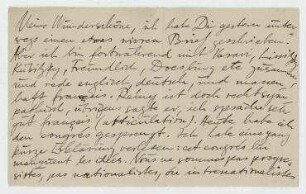 Meine Wunderschöne, ich habe Dir gestern unter-
wegs einen etwas wirren Brief geschickt.
Aber ich bin fortwährend mit
Freundlich, Doesburg etc zusammen
und rede englisch, deutsch, und
französisch. ist doch recht sym-
pathisch, übrigens sagte er, ich spreche sehr
gut français (articulation). Heute habe ich
den congrès gesprengt. Ich habe eine ganz
kurze Erklärung verlesen: cet congrès lui
manquent les idées. Nous ne sommes pas progres-
sistes, pas nationalistes, ou internationalistes